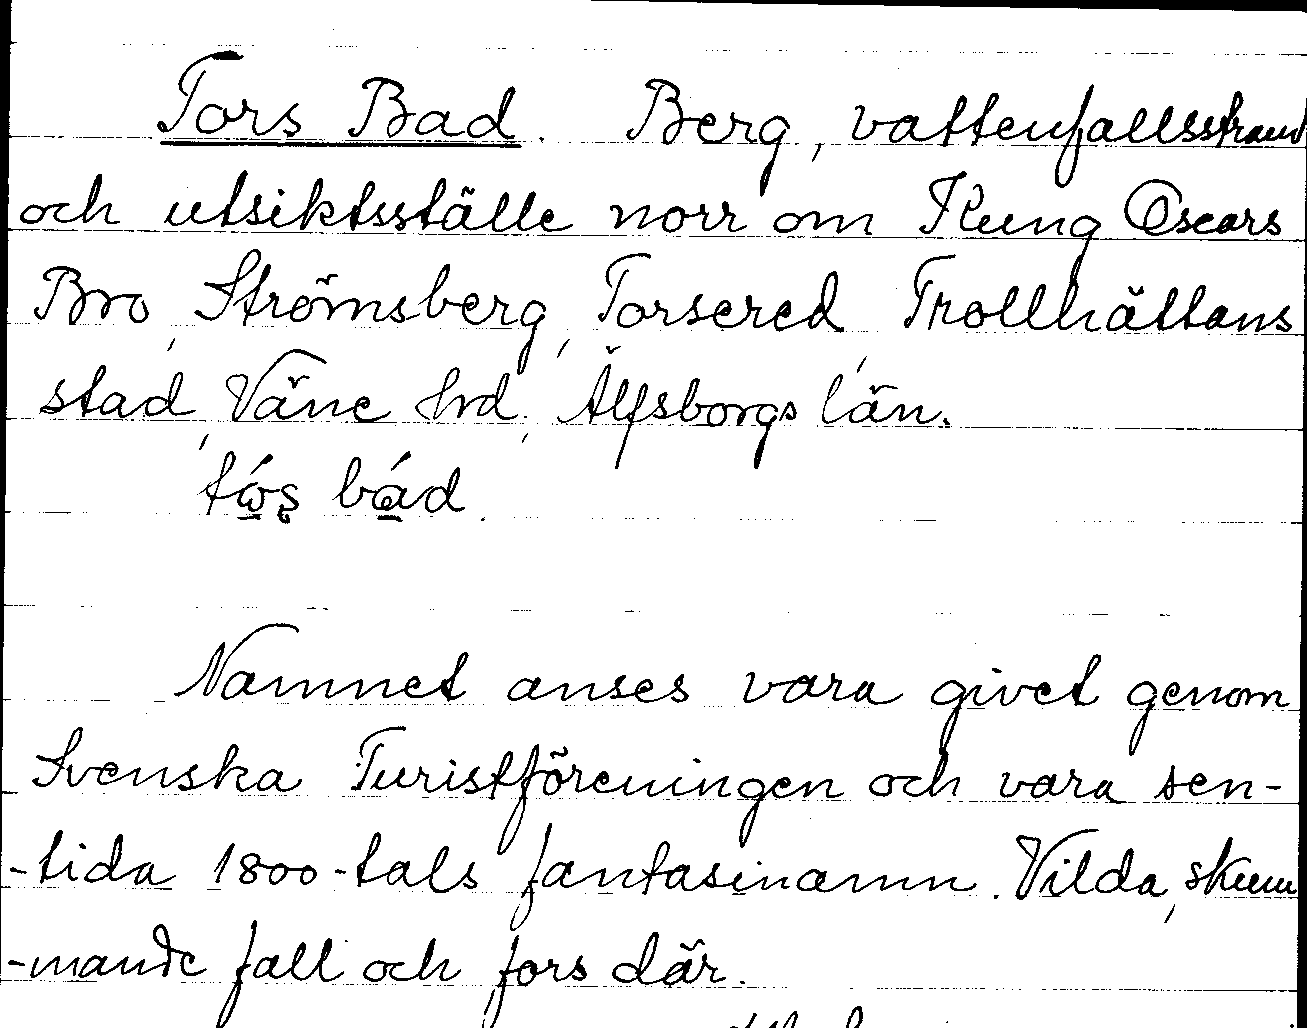 Tors Bad. Berg, vattenfallsstrand
och utsiktsställe norr om Kung Oscars
Bro, Strömsberg, Torsered, Trollhättans
stad, Väne hrd, Älfsborgs län.
bád.
Namnet anses vara givet genom
Svenska Turistföreningen och vara sen-
-tida 1800-tals fantasinamn. Vilda, skum
-mande fall och fors där.